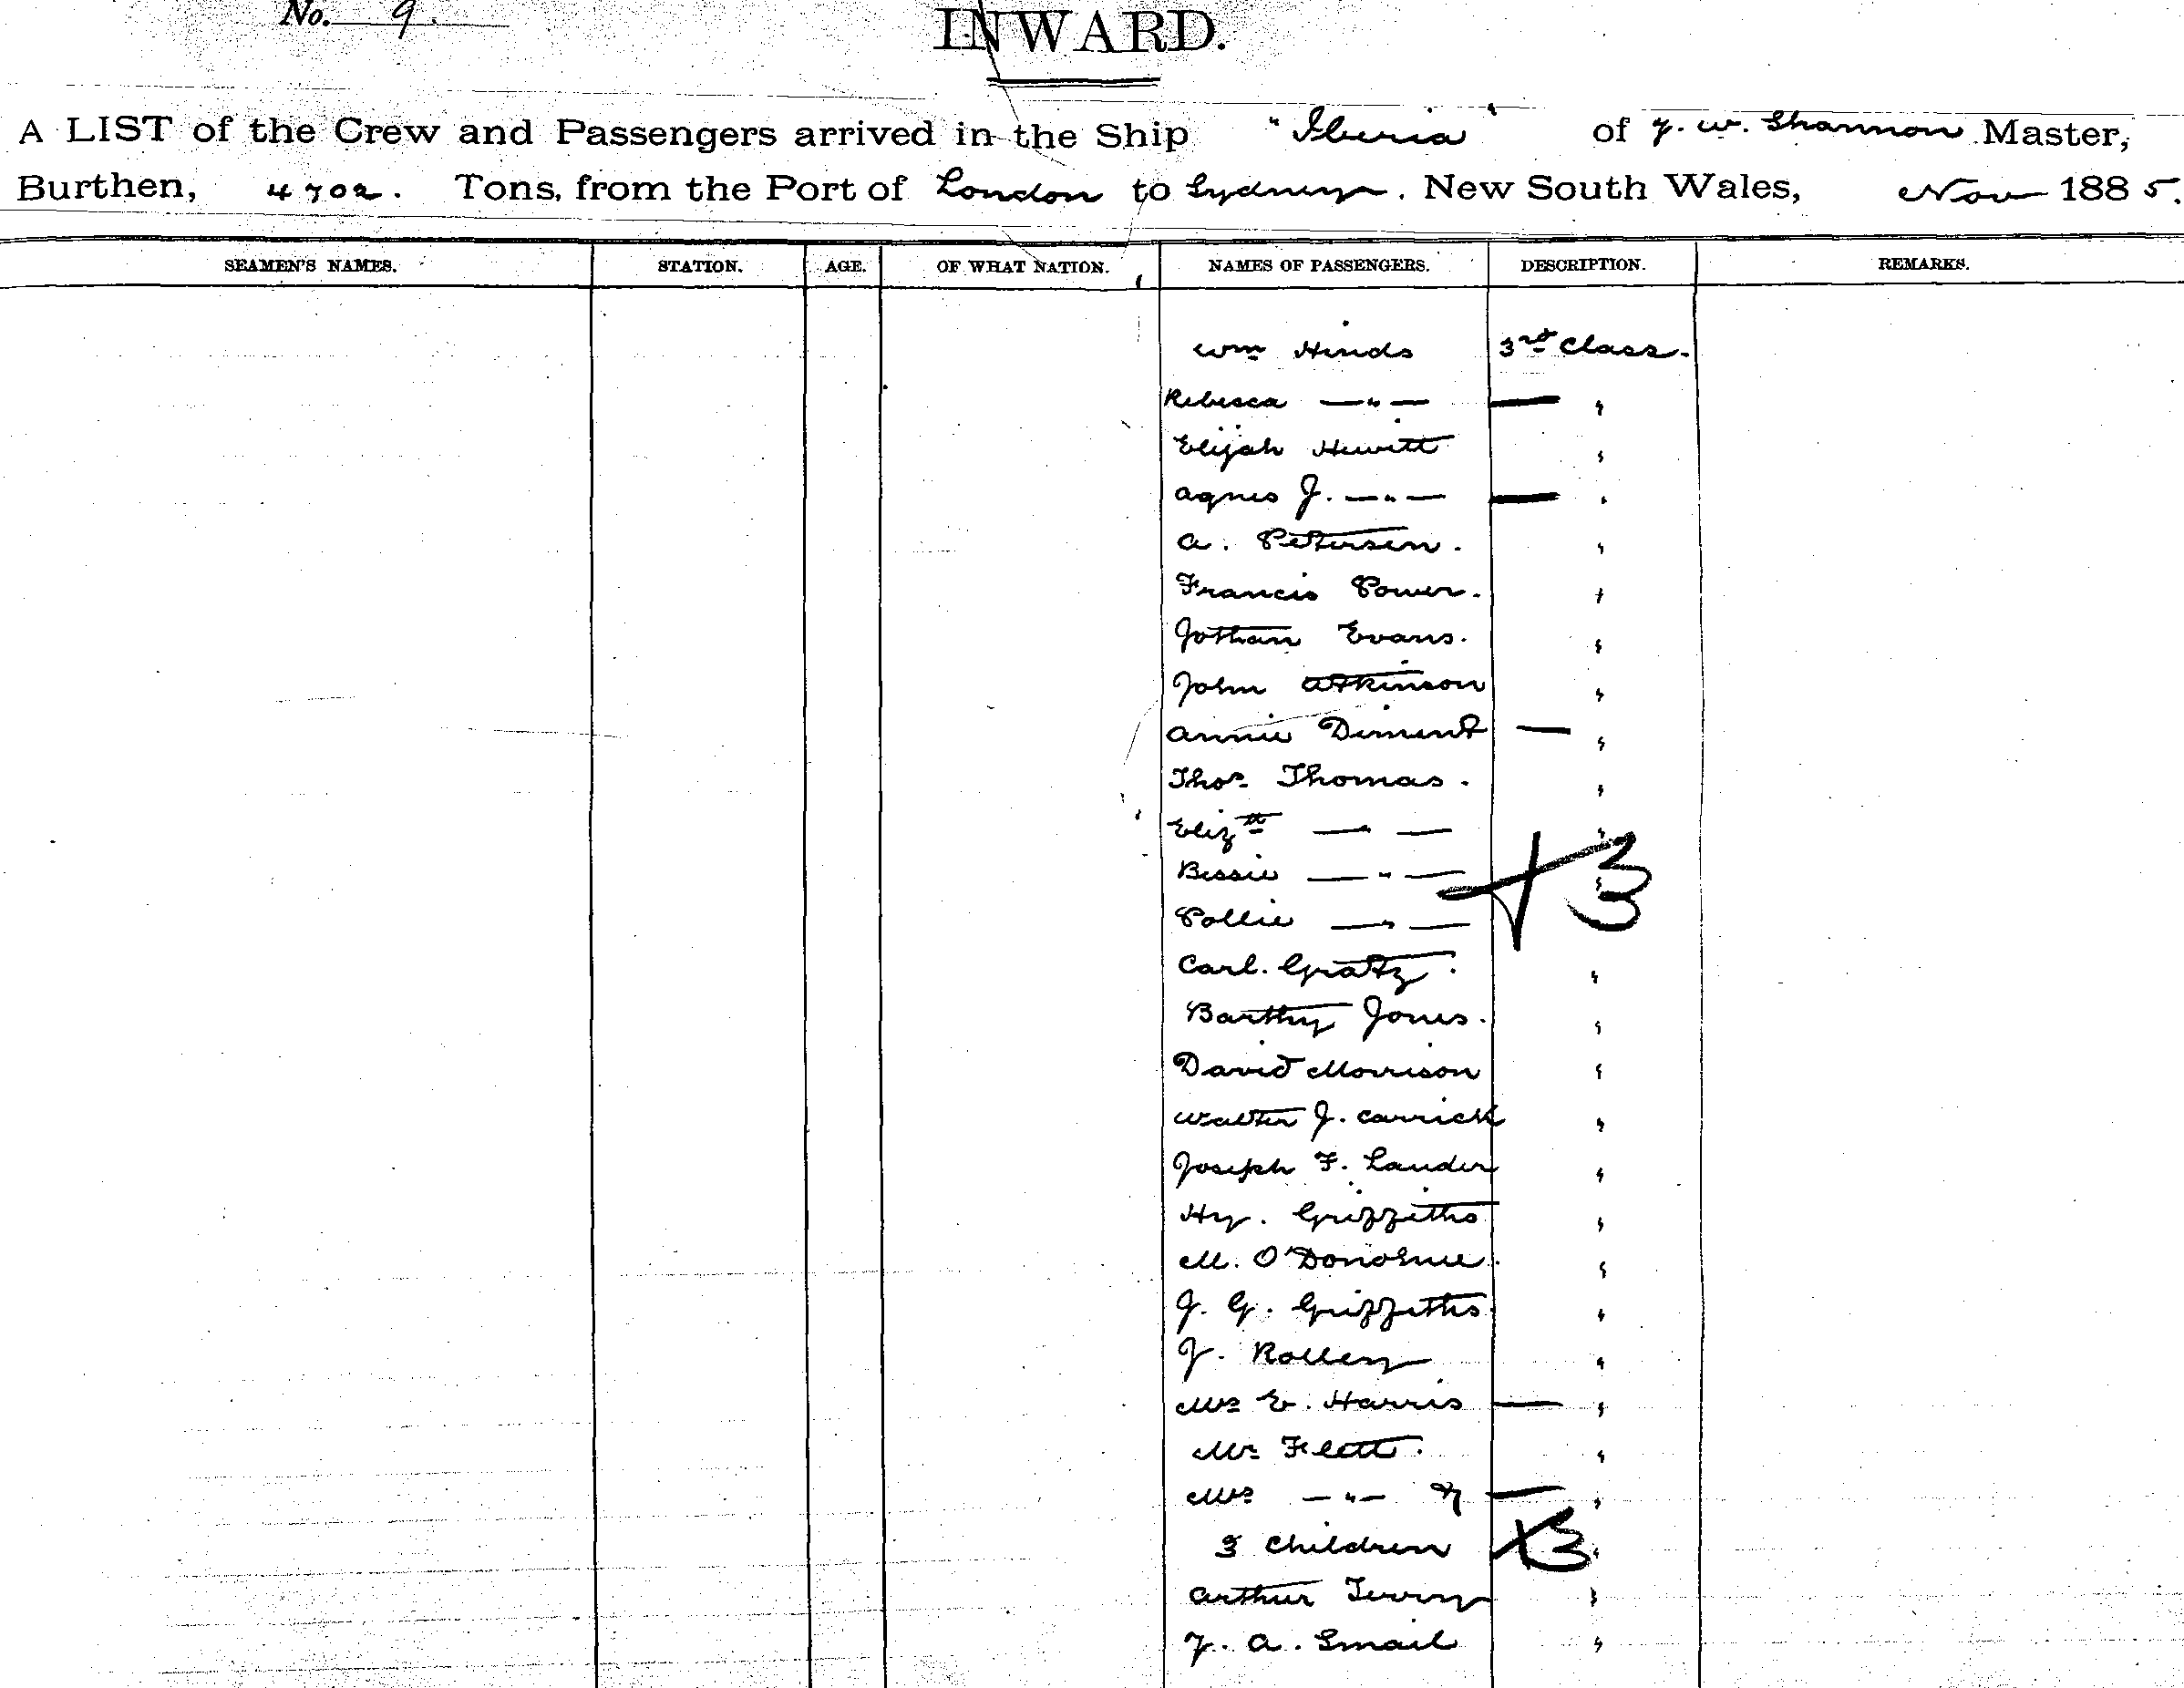 No. 9.
INWARD.
A LIST of the Crew and Passengers arrived in the Ship "Iberia" of J. W. Shannon Master,
Burthen, 4702. Tons, from the Port of London to Sydney. New South Wales, Nov 1885.
SEAMEN'S NAMES. STATION. AGE. OF WHAT NATION. NAMES OF PASSENGERS. DESCRIPTION. REMARKS.
Wm Hinds 3rd Class.
Rebecca —"— "
Elijah Hewitt "
Agnes J. —"— "
A. Petersen. "
Francis Power. "
Jotham Evans. "
John Atkinson "
Annie Diment "
Thos. Thomas. "
Elizth —"— "
Bessie —"— "
Pollie —"— 3
Carl. Gratz. "
Barthy Jones. "
David Morrison "
Walter J. Carrick "
Joseph F. Lauder "
Hy. Griffiths "
M. O'Donohue. "
J. G. Griffiths "
J. Rolley "
Mrs E. Harris "
Mr Flett. "
Mrs —"— & "
3 Children 3 "
Arthur Terry "
J. A. Smail "